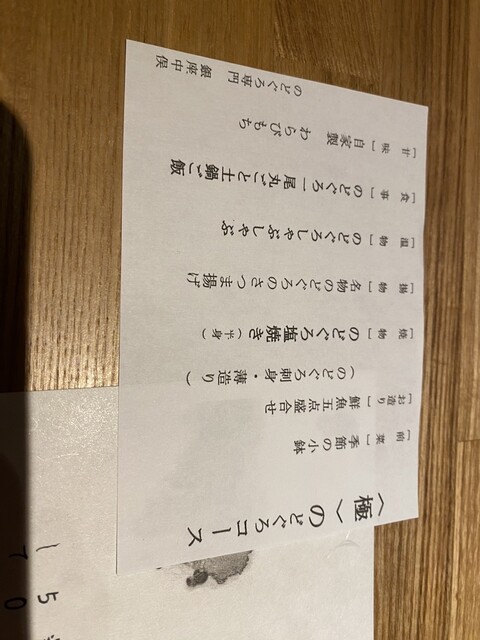 〈極〉のどぐろコース
［前菜］季節の小鉢
［お造り］鮮魚五点盛合せ
（のどぐろ刺身・薄造り）
［焼物］のどぐろ塩焼き（半身）
［揚物］名物のどぐろのさつま揚げ
［温物］のどぐろしゃぶしゃぶ
［食事］のどぐろ一尾丸ごと土鍋ご飯
［甘味］自家製わらびもち
のどぐろ専門 銀座中俣